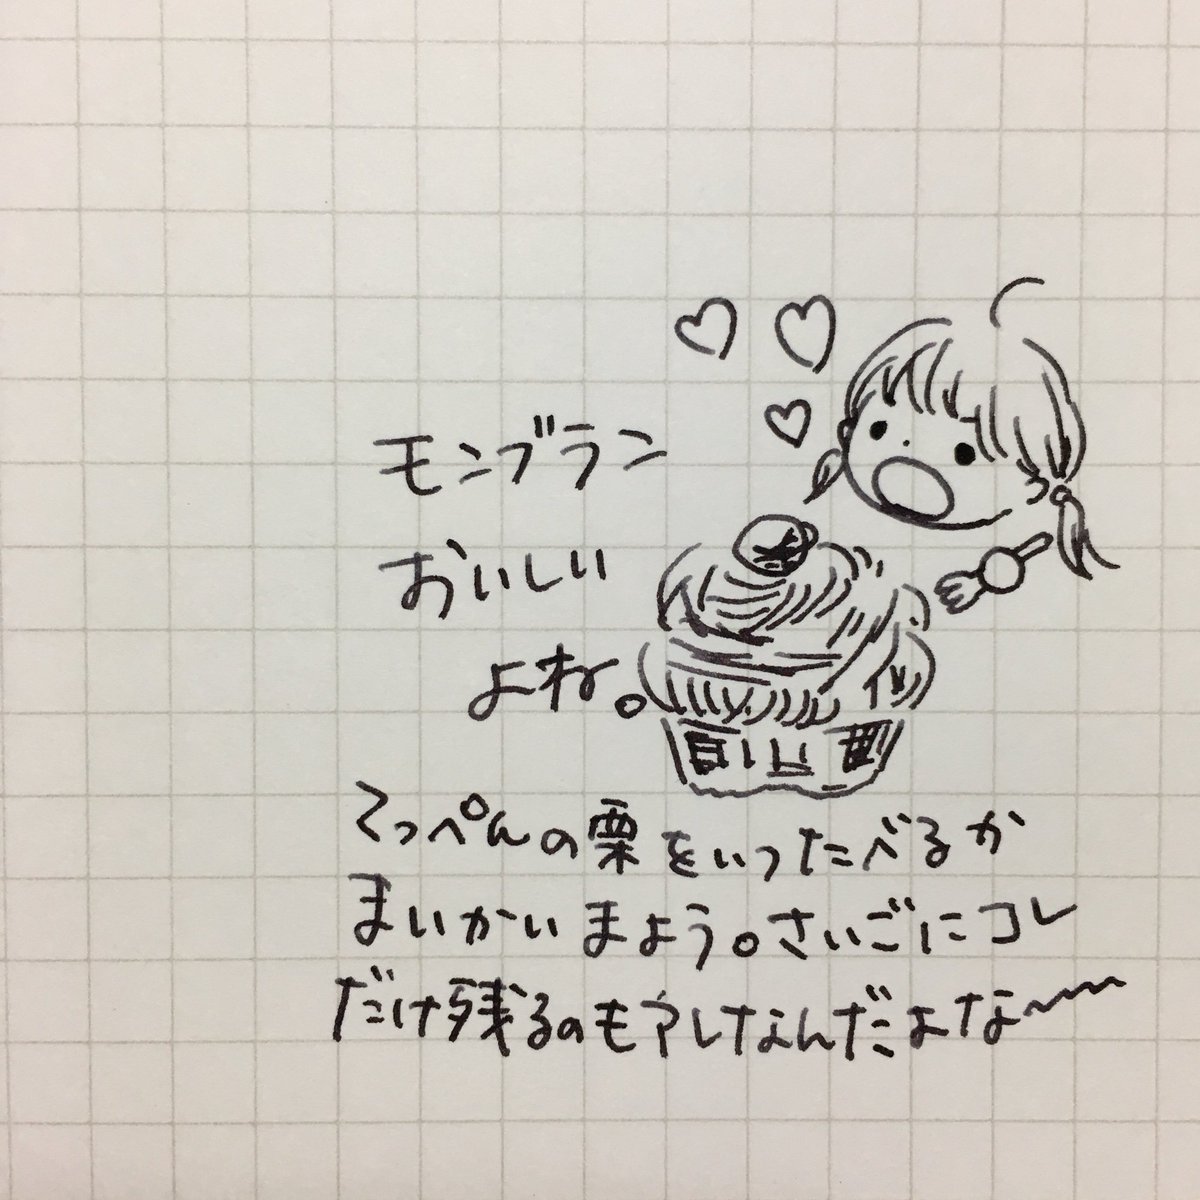 モンブラン
おいしい
よね。
てっぺんの栗をいつたべるか
まいかいまよう。さいごにコレ
だけ残るのもアレなんだよな〜